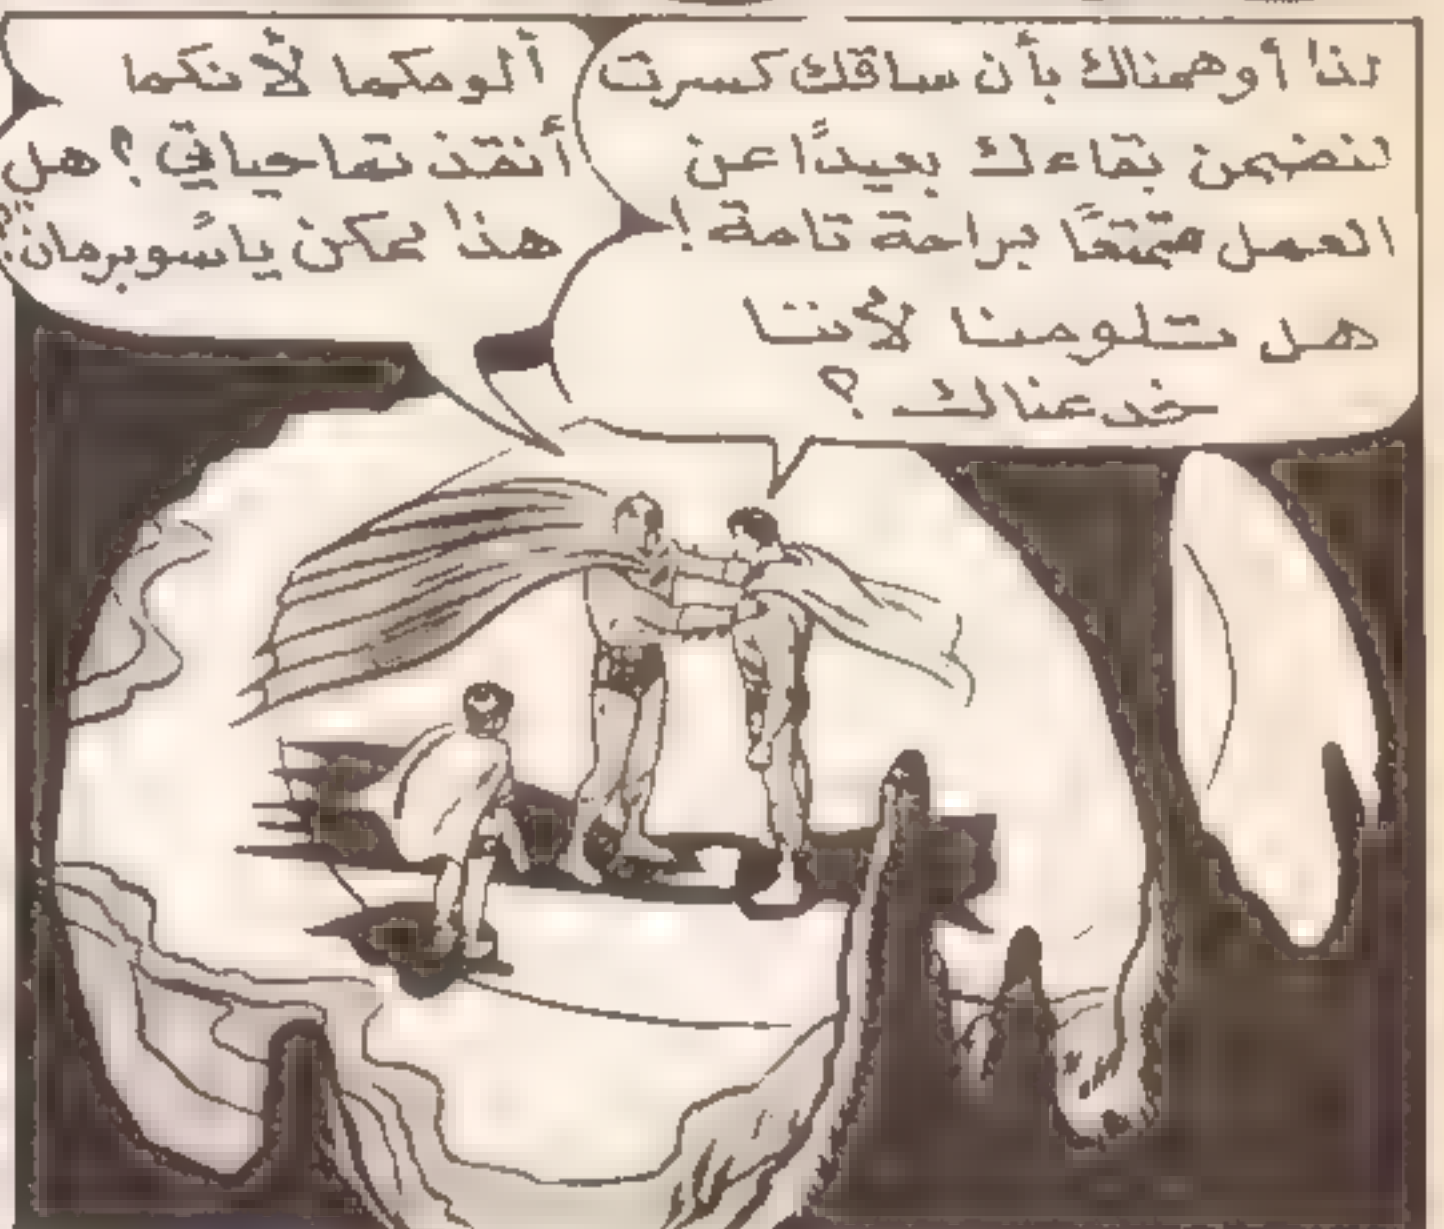 لذا أوهمناك بأن ساقك كسرت
لنضمن بقاءك بعيدًا عن
العمل متمتعًا براحة تامة!
هل تلومنا لأننا
خدعناك؟
ألومكما لأنكما
أنقذتما حياتي؟ هل
هذا يمكن يا سوبرمان؟!